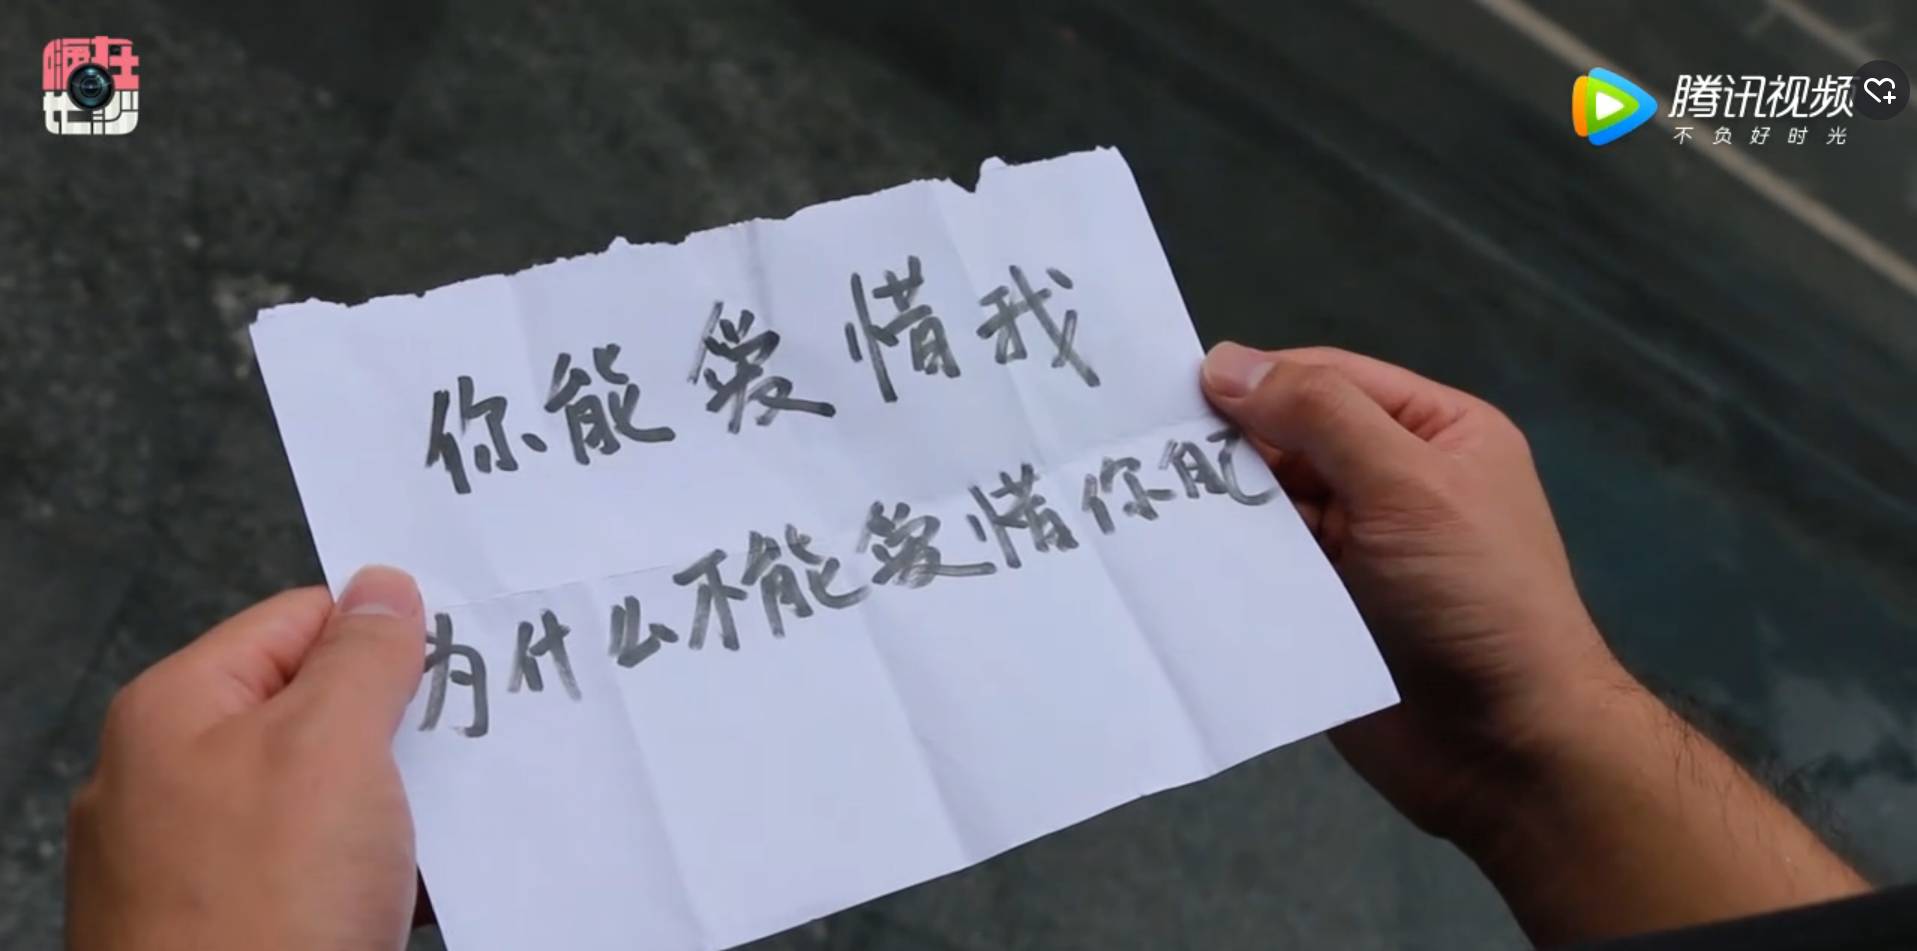 嗨在
腾讯视频
不负好时光
你能爱惜我
为什么不能爱惜你自己